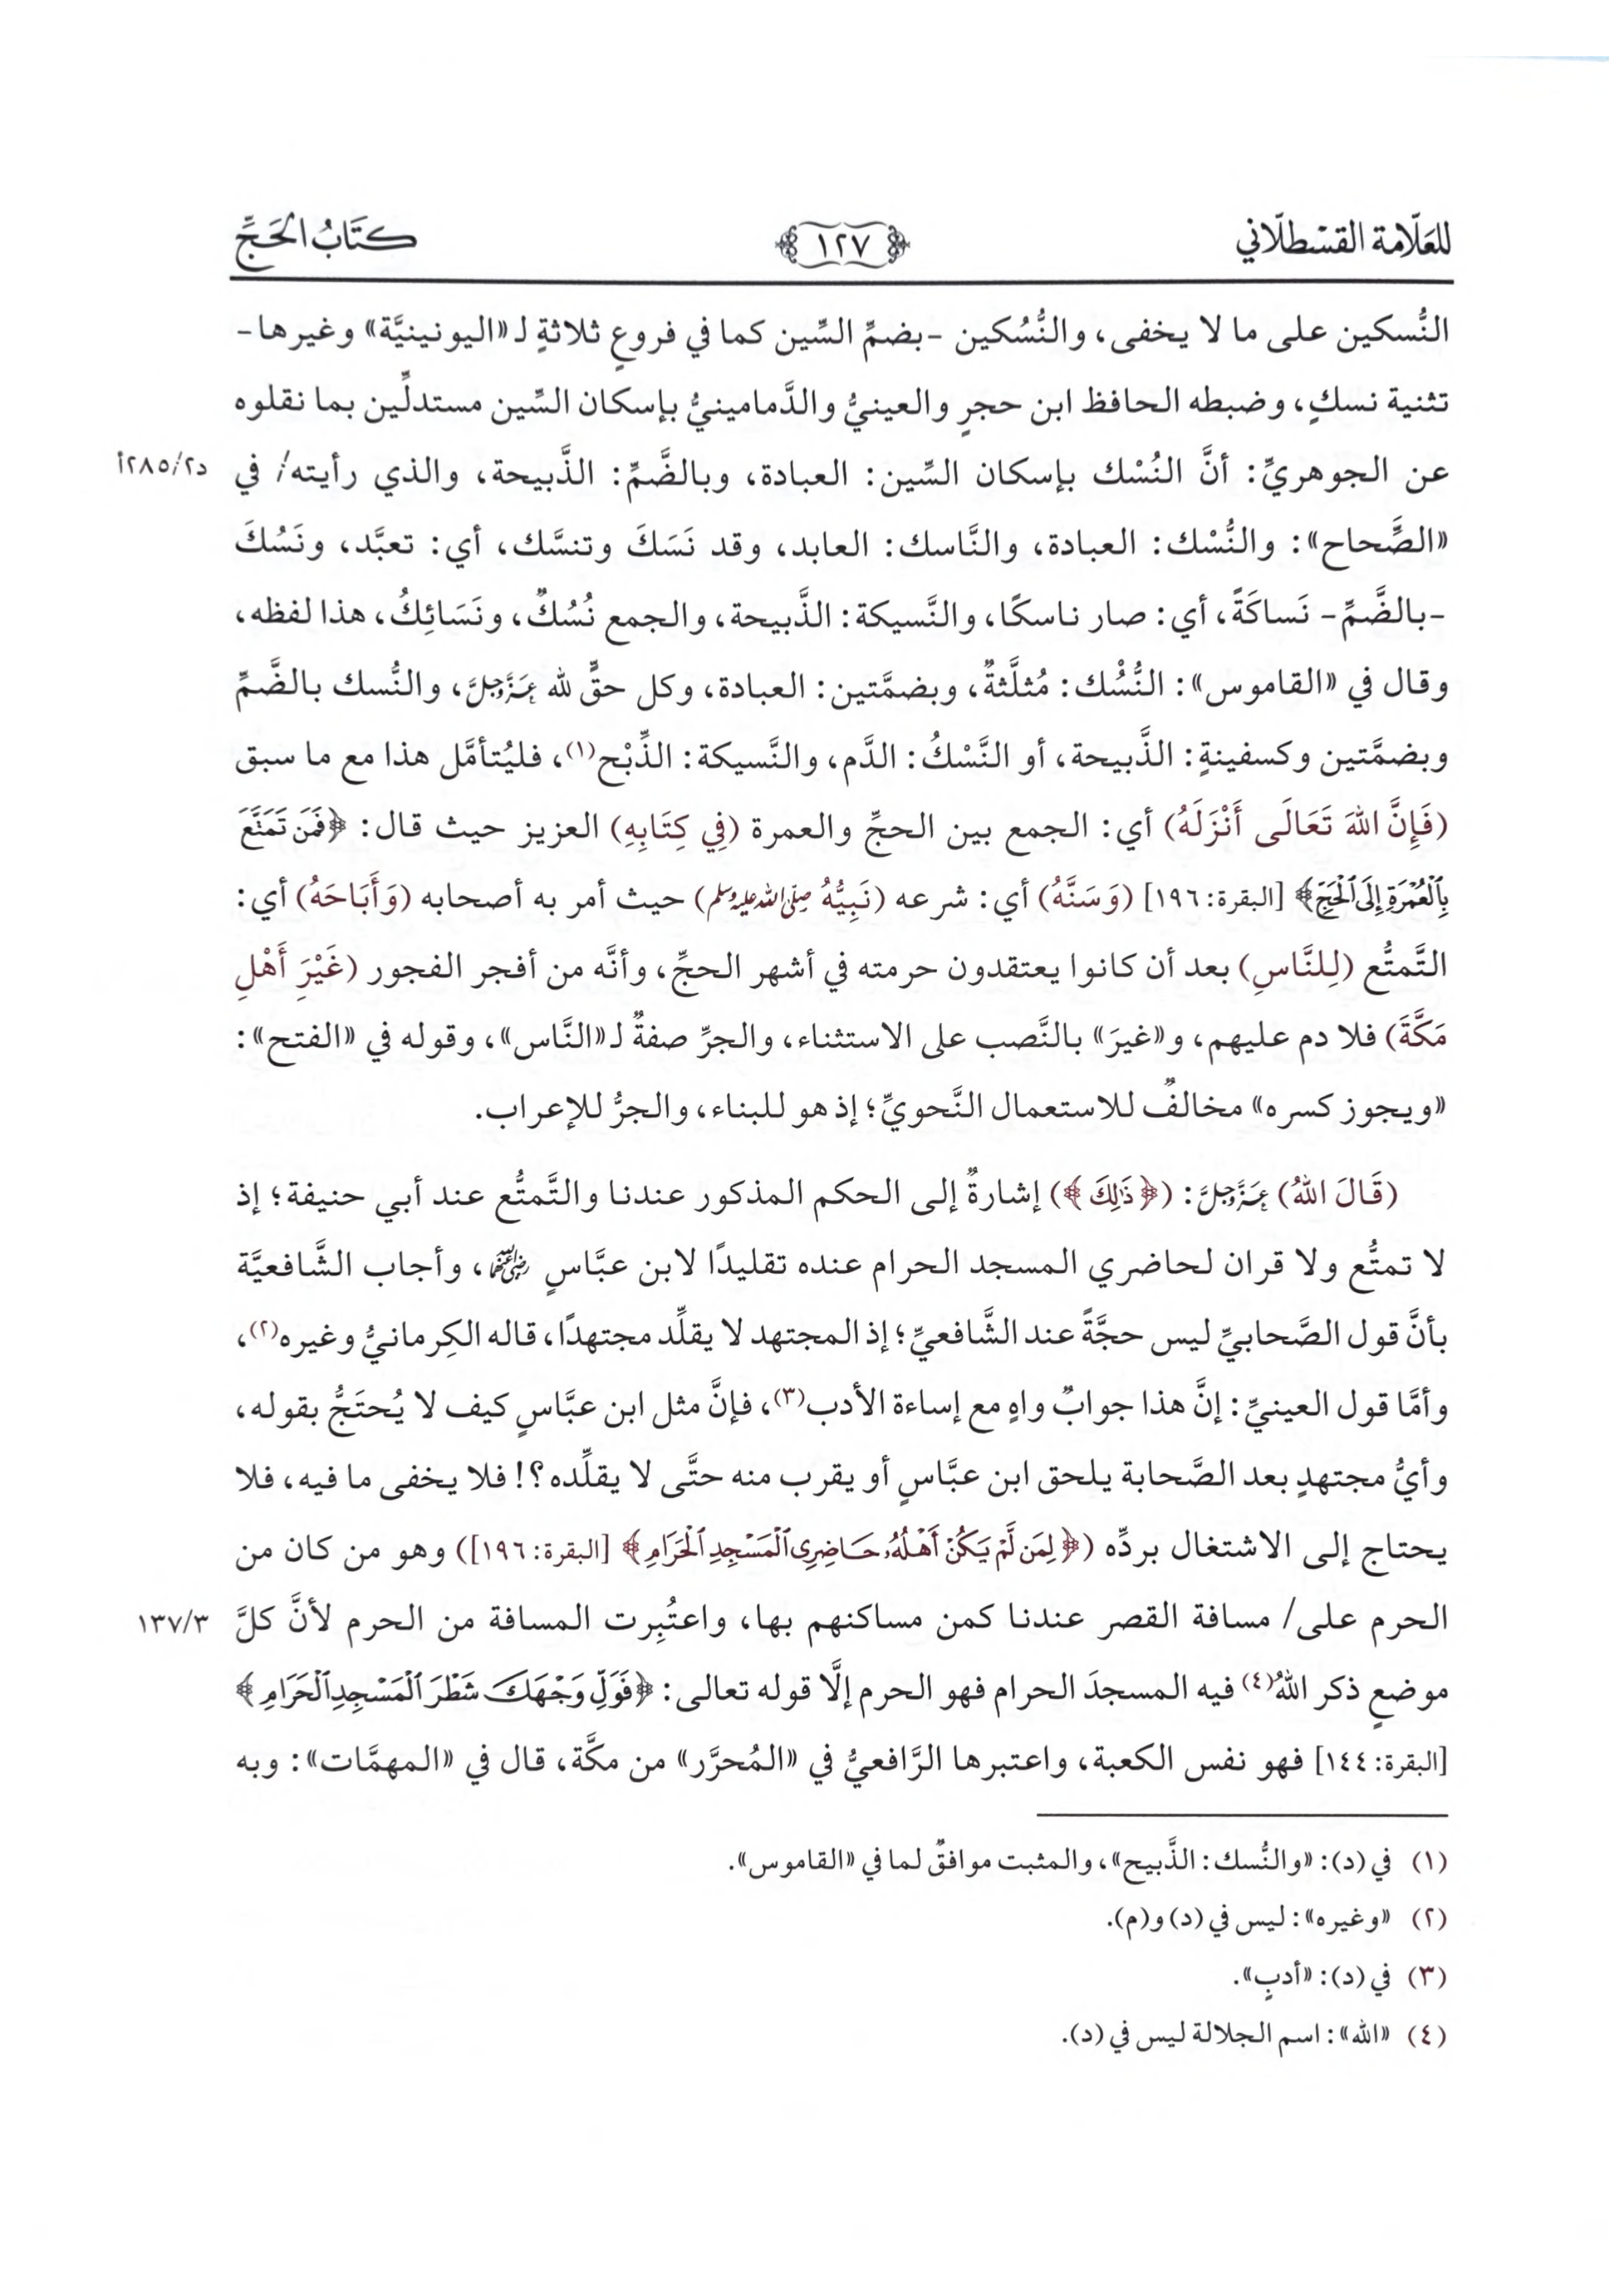 للعلّامة القسْطلّاني
﴿١٢٧﴾
كتَابُ الحَجِّ
النُّسكين على ما لا يخفى، والنُّسُكين -بضمِّ السِّين كما في فروعٍ ثلاثةٍ لـ«اليونينيَّة» وغيرها-
تثنية نسكٍ، وضبطه الحافظ ابن حجرٍ والعينيُّ والدَّمامينيُّ بإسكان السِّين مستدلِّين بما نقلوه
عن الجوهريِّ: أنَّ النُسْك بإسكان السِّين: العبادة، وبالضَّمِّ: الذَّبيحة، والذي رأيته/ في
د٢/٢٨٥أ
«الصِّحاح»: والنُّسْك: العبادة، والنَّاسك: العابد، وقد نَسَكَ وتنسَّك، أي: تعبَّد، ونَسُكَ
-بالضَّمِّ- نَساكَةً، أي: صار ناسكًا، والنَّسيكة: الذَّبيحة، والجمع نُسُكٌ، ونَسَائِكُ، هذا لفظه،
وقال في «القاموس»: النُّسُْك: مُثلَّثةٌ، وبضمَّتين: العبادة، وكل حقٍّ لله عَزَّوَجَلَّ، والنُّسك بالضَّمِّ
وبضمَّتين وكسفينةٍ: الذَّبيحة، أو النَّسْكُ: الدَّم، والنَّسيكة: الذِّبْح(١)، فليُتأمَّل هذا مع ما سبق
(فَإِنَّ اللهَ تَعَالَى أَنْزَلَهُ) أي: الجمع بين الحجِّ والعمرة (فِي كِتَابِهِ) العزيز حيث قال: ﴿فَمَن تَمَتَّعَ
بِٱلْعُمْرَةِ إِلَى ٱلْحَجِّ﴾ [البقرة: ١٩٦] (وَسَنَّهُ) أي: شرعه (نَبِيُّهُ صلى الله عليه وسلم) حيث أمر به أصحابه (وَأَبَاحَهُ) أي:
التَّمتُّع (لِلنَّاسِ) بعد أن كانوا يعتقدون حرمته في أشهر الحجِّ، وأنَّه من أفجر الفجور (غَيْرَِ أَهْلِ
مَكَّةَ) فلا دم عليهم، و«غيرَ» بالنَّصب على الاستثناء، والجرِّ صفةٌ لـ«النَّاس»، وقوله في «الفتح»:
«ويجوز كسره» مخالفٌ للاستعمال النَّحويِّ؛ إذ هو للبناء، والجرُّ للإعراب.
(قَالَ اللهُ) عَزَّوَجَلَّ: (﴿ذَٰلِكَ﴾) إشارةٌ إلى الحكم المذكور عندنا والتَّمتُّع عند أبي حنيفة؛ إذ
لا تمتُّع ولا قران لحاضري المسجد الحرام عنده تقليدًا لابن عبَّاسٍ رضي الله عنهما، وأجاب الشَّافعيَّة
بأنَّ قول الصَّحابيِّ ليس حجَّةً عند الشَّافعيِّ؛ إذ المجتهد لا يقلِّد مجتهدًا، قاله الكِرمانيُّ وغيره(٢)،
وأمَّا قول العينيِّ: إنَّ هذا جوابٌ واهٍ مع إساءة الأدب(٣)، فإنَّ مثل ابن عبَّاسٍ كيف لا يُحتَجُّ بقوله،
وأيُّ مجتهدٍ بعد الصَّحابة يلحق ابن عبَّاسٍ أو يقرب منه حتَّى لا يقلِّده؟! فلا يخفى ما فيه، فلا
يحتاج إلى الاشتغال بردِّه (﴿لِمَن لَّمْ يَكُنْ أَهْلُهُۥ حَاضِرِى ٱلْمَسْجِدِ ٱلْحَرَامِ﴾ [البقرة: ١٩٦]) وهو من كان من
الحرم على/ مسافة القصر عندنا كمن مساكنهم بها، واعتُبِرت المسافة من الحرم لأنَّ كلَّ
١٣٧/٣
موضعٍ ذكر اللهُ(٤) فيه المسجدَ الحرام فهو الحرم إلَّا قوله تعالى: ﴿فَوَلِّ وَجْهَكَ شَطْرَ ٱلْمَسْجِدِ ٱلْحَرَامِ﴾
[البقرة: ١٤٤] فهو نفس الكعبة، واعتبرها الرَّافعيُّ في «المُحرَّر» من مكَّة، قال في «المهمَّات»: وبه
(١) في (د): «والنُّسك: الذَّبيح»، والمثبت موافقٌ لما في «القاموس».
(٢) «وغيره»: ليس في (د) و(م).
(٣) في (د): «أدبٍ».
(٤) «الله»: اسم الجلالة ليس في (د).